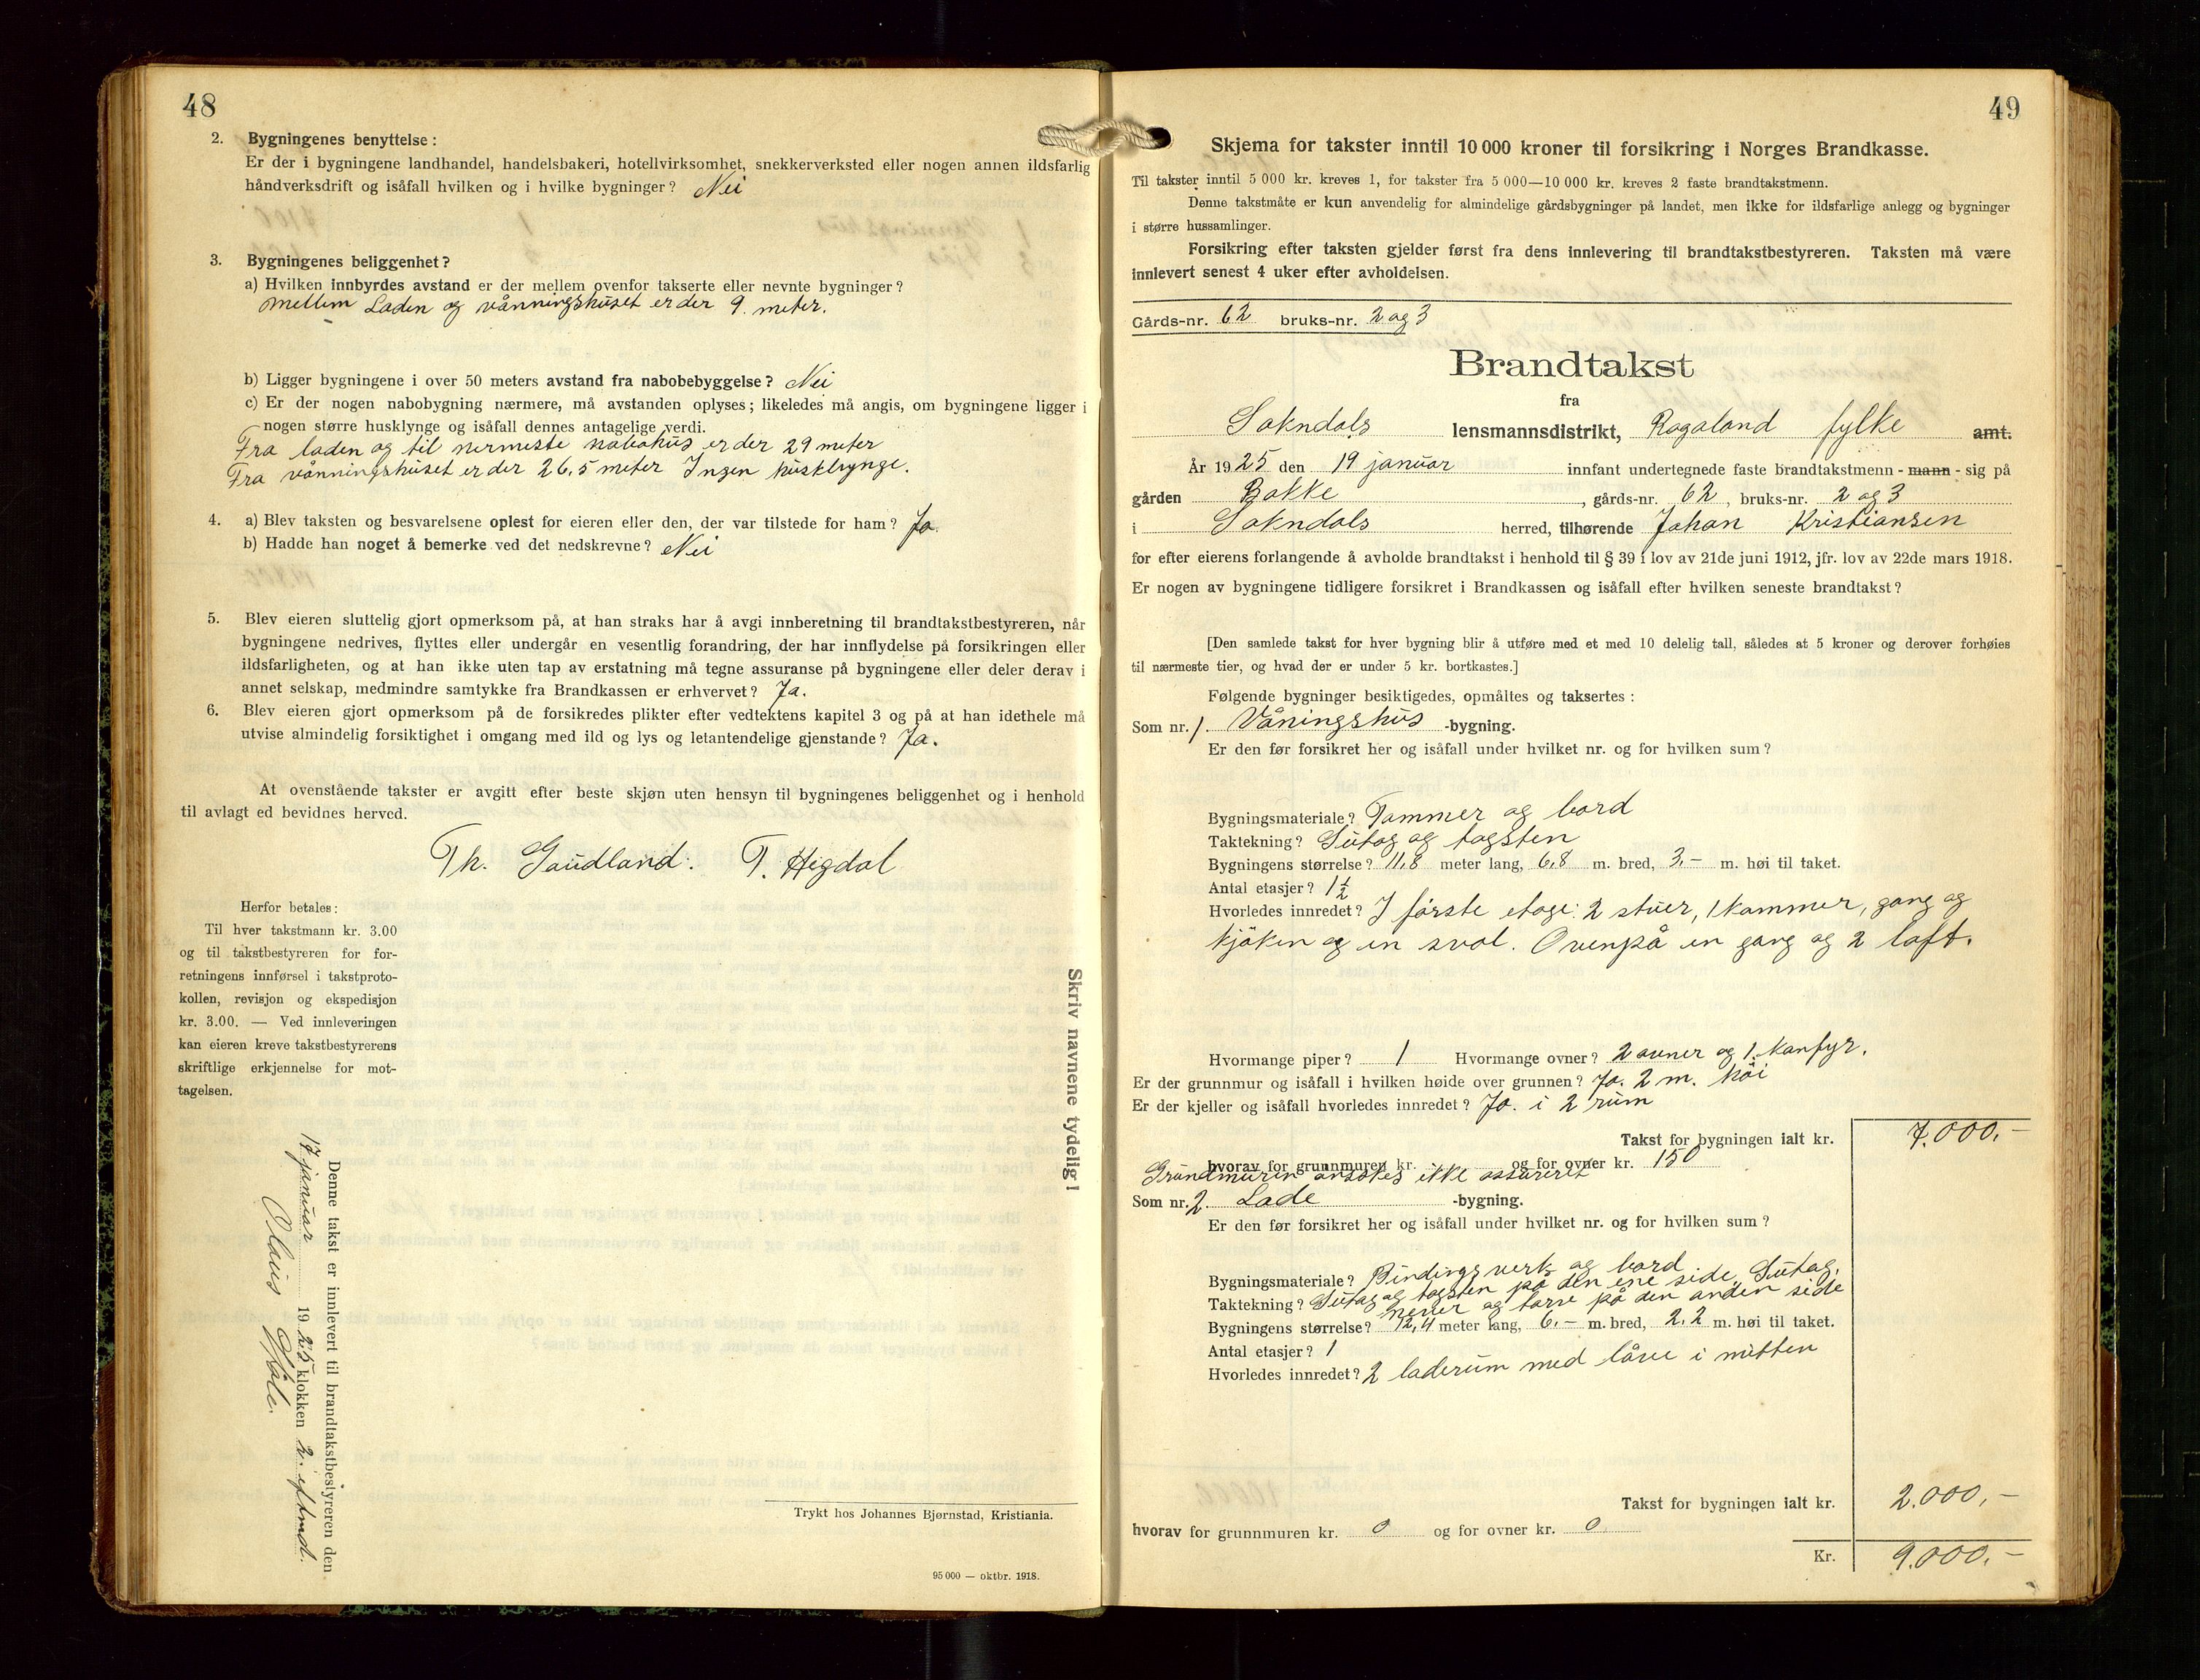 48
2. Bygningenes benyttelse:
Er der i bygningene landhandel, handelsbakeri, hotellvirksomhet, snekkerverksted eller nogen annen ildsfarlig
håndverksdrift og isåfall hvilken og i hvilke bygninger? Nei
3. Bygningenes beliggenhet?
a) Hvilken innbyrdes avstand er der mellem ovenfor takserte eller nevnte bygninger?
mellem Laden og vånningshuset er der 9. meter.
b) Ligger bygningene i over 50 meters avstand fra nabobebyggelse? Nei
c) Er der nogen nabobygning nærmere, må avstanden oplyses; likeledes må angis, om bygningene ligger i
nogen større husklynge og isåfall dennes antagelige verdi.
Fra laden og til nermeste nabohus er der 29 meter
Fra vånningshuset er der 26,5 meter Ingen husklynge.
4. a) Blev taksten og besvarelsene oplest for eieren eller den, der var tilstede for ham? Ja.
b) Hadde han noget å bemerke ved det nedskrevne? Nei
5. Blev eieren sluttelig gjort opmerksom på, at han straks har å avgi innberetning til brandtakstbestyreren, når
bygningene nedrives, flyttes eller undergår en vesentlig forandring, der har innflydelse på forsikringen eller
ildsfarligheten, og at han ikke uten tap av erstatning må tegne assuranse på bygningene eller deler derav i
annet selskap, medmindre samtykke fra Brandkassen er erhvervet? Ja.
6. Blev eieren gjort opmerksom på de forsikredes plikter efter vedtektens kapitel 3 og på at han idethele må
utvise almindelig forsiktighet i omgang med ild og lys og letantendelige gjenstande? Ja.
At ovenstående takster er avgitt efter beste skjøn uten hensyn til bygningenes beliggenhet og i henhold
til avlagt ed bevidnes herved.
Th. Gaudland. T. Hegdal
Herfor betales:
Til hver takstmann kr. 3.00
og til takstbestyreren for for-
retningens innførsel i takstproto-
kollen, revisjon og ekspedisjon
kr. 3.00. — Ved innleveringen
kan eieren kreve takstbestyrerens
skriftlige erkjennelse for mot-
tagelsen.
Skriv navnene tydelig!
Denne takst er innlevert til brandtakstbestyreren den
17 januar 1925 klokken 2. eftmd.
Olaus
Trykt hos Johannes Bjørnstad, Kristiania.
95 000 — oktbr. 1918.
49
Skjema for takster inntil 10 000 kroner til forsikring i Norges Brandkasse.
Til takster inntil 5 000 kr. kreves 1, for takster fra 5 000—10 000 kr. kreves 2 faste brandtakstmenn.
Denne takstmåte er kun anvendelig for almindelige gårdsbygninger på landet, men ikke for ildsfarlige anlegg og bygninger
i større hussamlinger.
Forsikring efter taksten gjelder først fra dens innlevering til brandtakstbestyreren. Taksten må være
innlevert senest 4 uker efter avholdelsen.
Gårds-nr. 62 bruks-nr. 2 og 3
Brandtakst
fra
Sokndals lensmannsdistrikt, Rogaland fylke amt.
År 1925 den 19 januar innfant undertegnede faste brandtakstmenn - mann - sig på
gården Bakke, gårds-nr. 62, bruks-nr. 2 og 3
i Sokndals herred, tilhørende Johan Kristiansen
for efter eierens forlangende å avholde brandtakst i henhold til § 39 i lov av 21de juni 1912, jfr. lov av 22de mars 1918.
Er nogen av bygningene tidligere forsikret i Brandkassen og isåfall efter hvilken seneste brandtakst?
[Den samlede takst for hver bygning blir å utføre med et med 10 delelig tall, således at 5 kroner og derover forhøies
til nærmeste tier, og hvad der er under 5 kr. bortkastes.]
Følgende bygninger besiktigedes, opmåltes og taksertes:
Som nr. 1. Våningshus -bygning.
Er den før forsikret her og isåfall under hvilket nr. og for hvilken sum?
Bygningsmateriale? Tømmer og bord
Taktekning? Sutag og tagsten
Bygningens størrelse? 11,8 meter lang, 6,8 m. bred, 3,- m. høi til taket.
Antal etasjer? 1½
Hvorledes innredet? I første etage: 2 stuer, 1 kammer, gang og
kjøken og en sval. Ovenpå en gang og 2 loft.
Hvormange piper? 1 Hvormange ovner? 2 ovner og 1. komfyr.
Er der grunnmur og isåfall i hvilken høide over grunnen? Ja. 2 m. høi
Er der kjeller og isåfall hvorledes innredet? Ja. i 2 rum
Takst for bygningen ialt kr. 7.000,-
hvorav for grunnmuren kr. og for ovner kr. 150
Grundmuren ønskes ikke assureret
Som nr. 2. Lade -bygning.
Er den før forsikret her og isåfall under hvilket nr. og for hvilken sum?
Bygningsmateriale? Bindingsverk og bord
Taktekning? Sutag og tagsten på den ene side, Sutag,
never og torv på den anden side
Bygningens størrelse? 12,4 meter lang, 6,- m. bred, 2,2 m. høi til taket.
Antal etasjer? 1
Hvorledes innredet? 2 laderum med låve i mitten
Takst for bygningen ialt kr. 2.000,-
hvorav for grunnmuren kr. 0 og for ovner kr. 0
Kr. 9.000,-